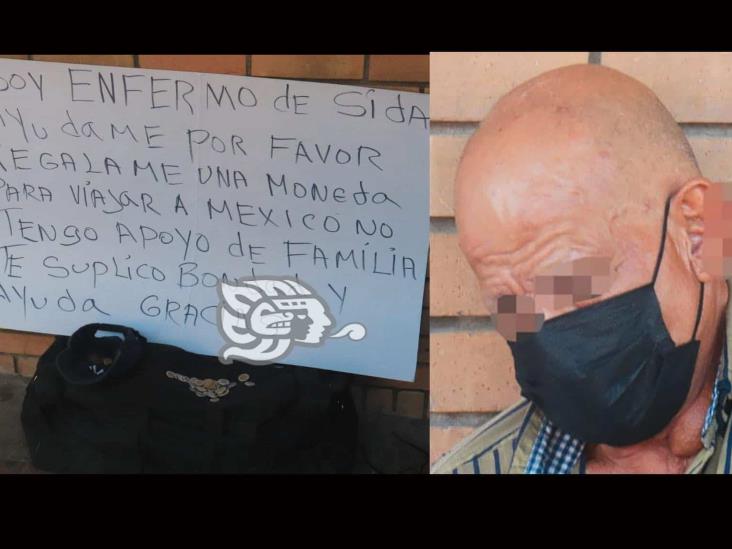 SOY ENFERMO de SídA
AYUdAME POR FAVOR
REGALAME UNA MONEdA
PARA VíAJAR A MEXICO NO
TENGO APOYO dE FAMíLIA
TE SUPLICO Y
AYUdA